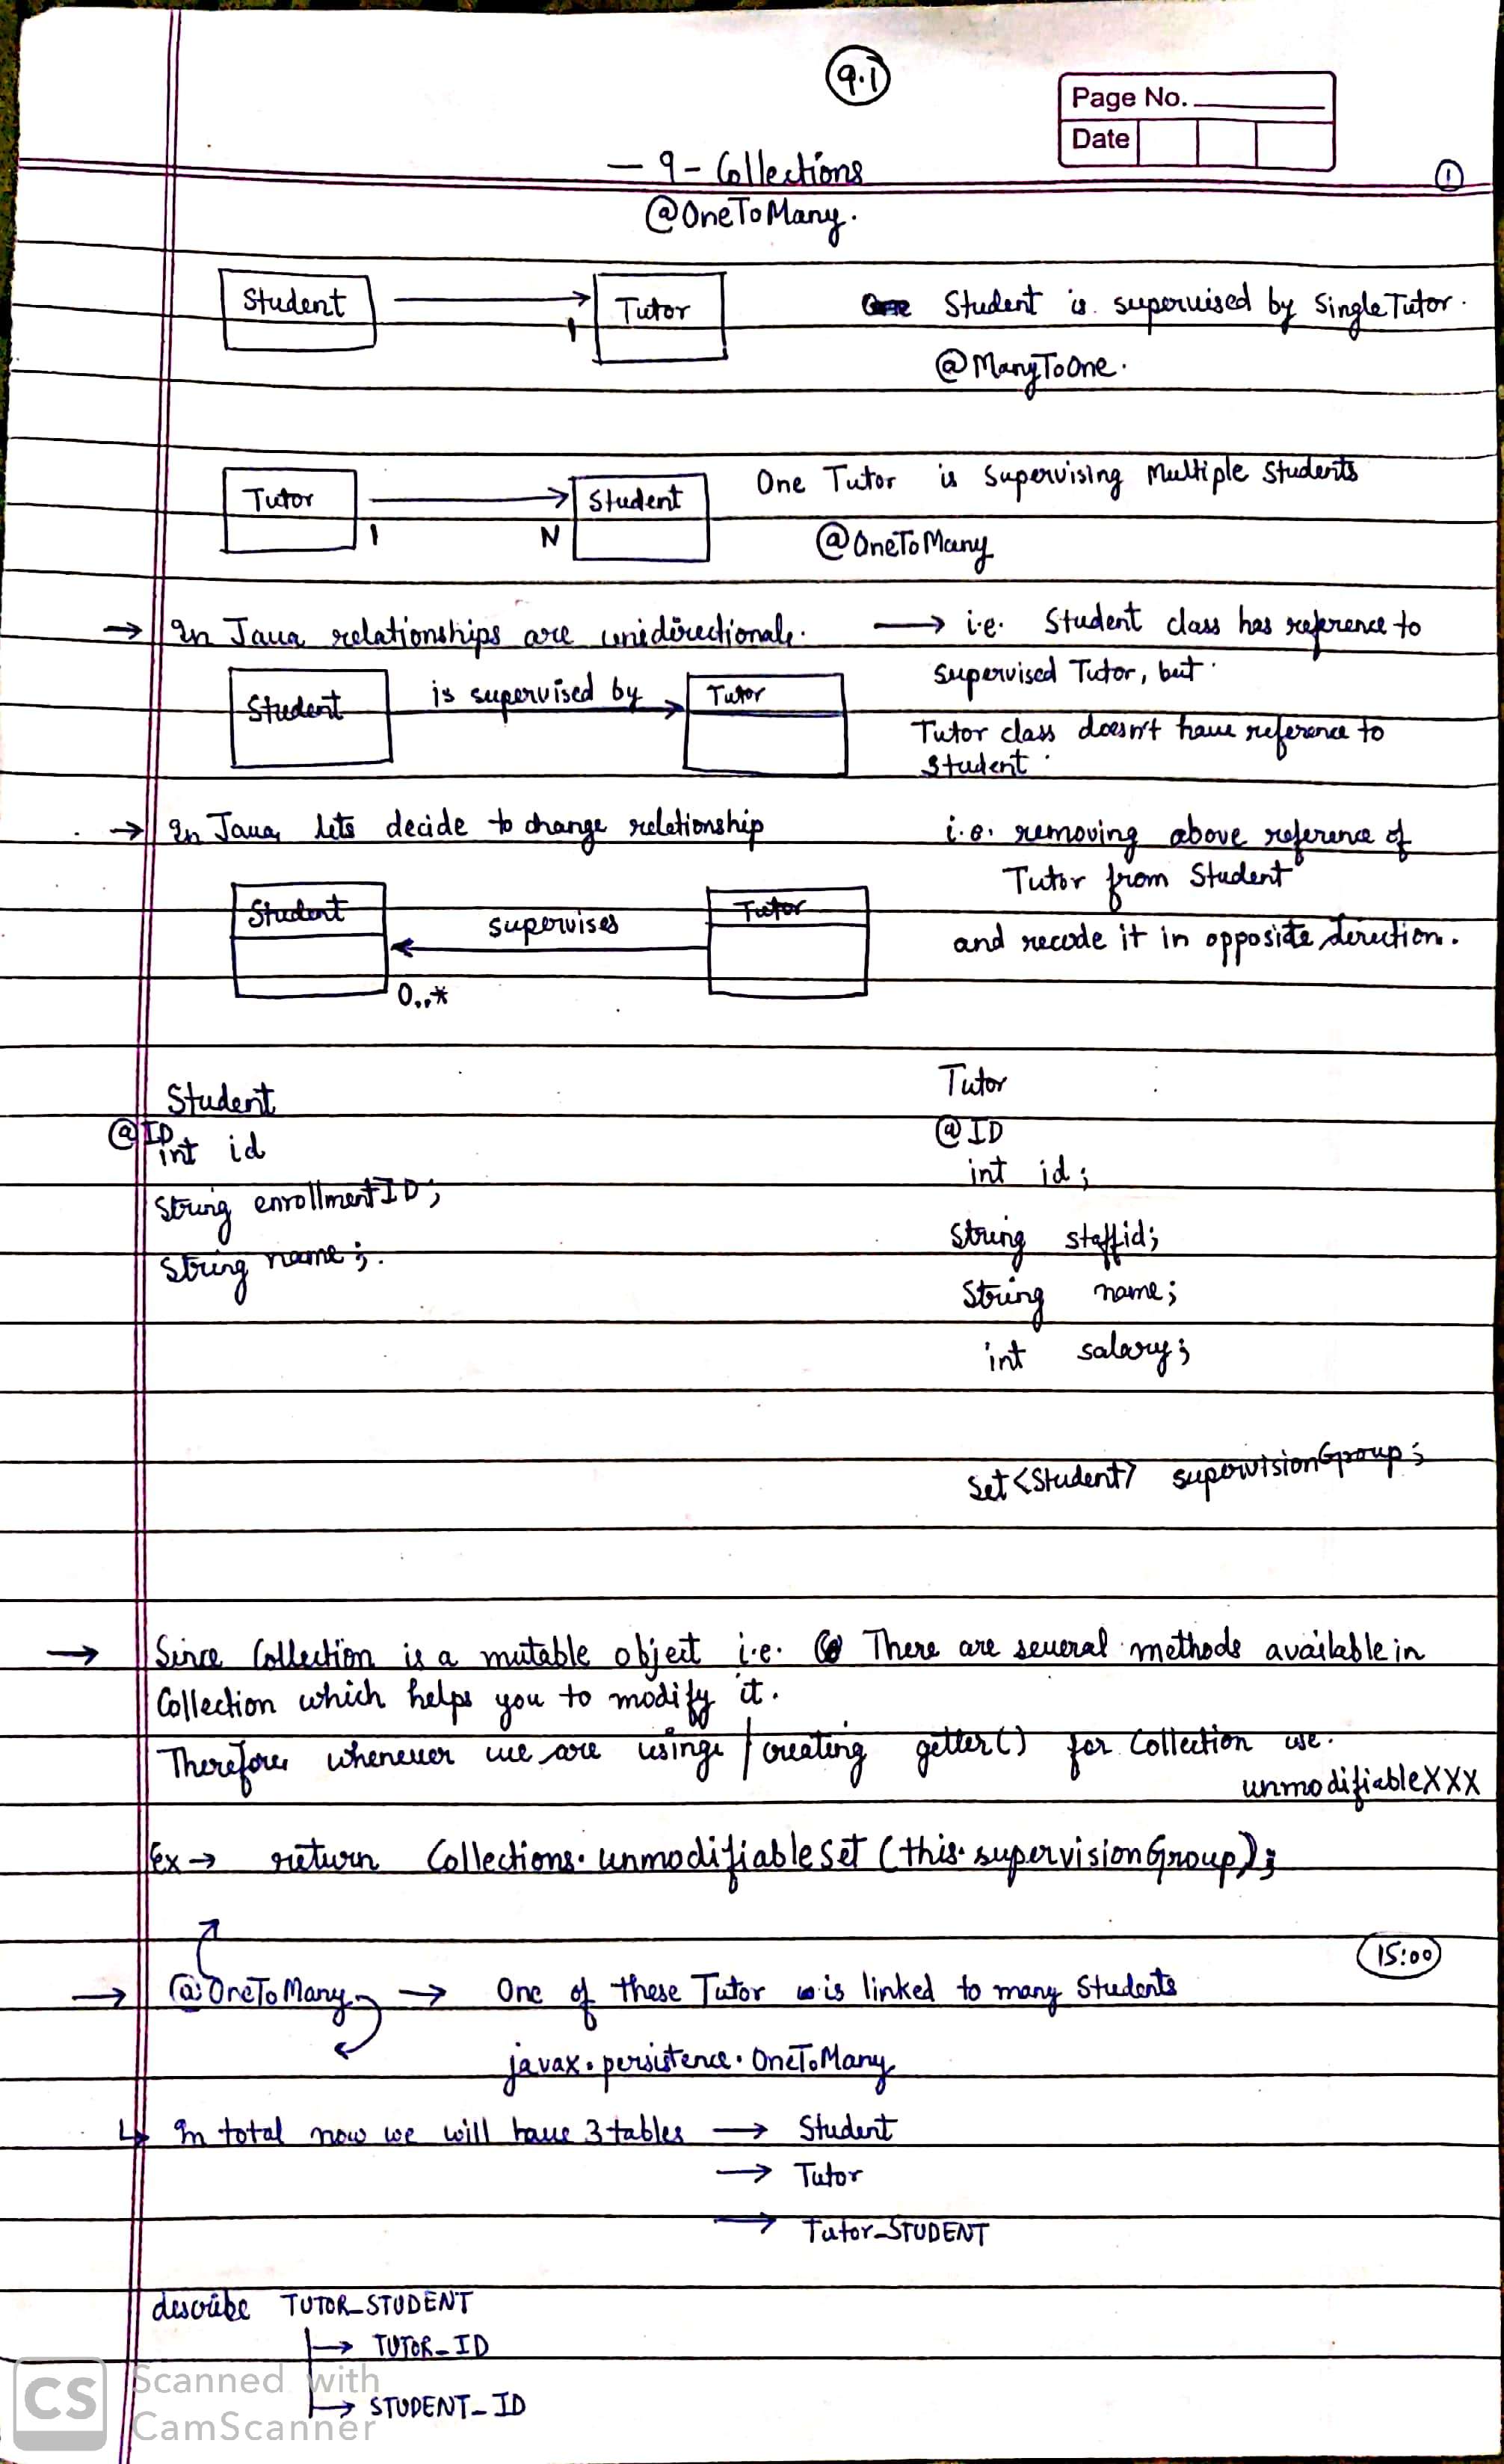 9.1
Page No.
Date
1
— 9 - Collections
@OneToMany.
Student
1
Tutor
Student is supervised by Single Tutor.
@ManyToOne.
Tutor
1
N
Student
One Tutor is Supervising Multiple Students
@OneToMany
→ In Java relationships are unidirectional. → i.e. Student class has reference to
supervised Tutor, but
Student
is supervised by
Tutor
Tutor class doesn't have reference to
Student.
→ In Java, lets decide to change relationship
i.e. removing above reference of
Tutor from Student
Student
supervises
Tutor
and recode it in opposite direction.
0..*
Student
Tutor
@ID
int id
@ID
int id;
String enrollmentID;
String staffid;
String name;
String name;
int salary;
Set<Student> supervisionGroup;
→ Since Collection is a mutable object i.e. There are several methods available in
Collection which helps you to modify it.
Therefore whenever we are using / creating getter() for Collection use.
unmodifiableXXX
Ex → return Collections.unmodifiableSet(this.supervisionGroup);
15:00
→ @OneToMany → One of these Tutor is linked to many Students
javax.persistence.OneToMany
↳ In total now we will have 3 tables → Student
→ Tutor
→ Tutor_STUDENT
describe TUTOR_STUDENT
→ TUTOR_ID
→ STUDENT_ID
CS
Scanned with
CamScanner